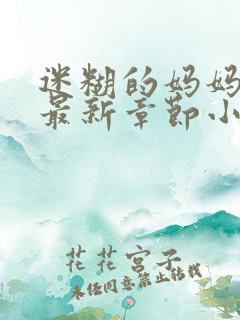 迷糊的妈妈
最新章节小
花花宫子
未经同意禁止转载